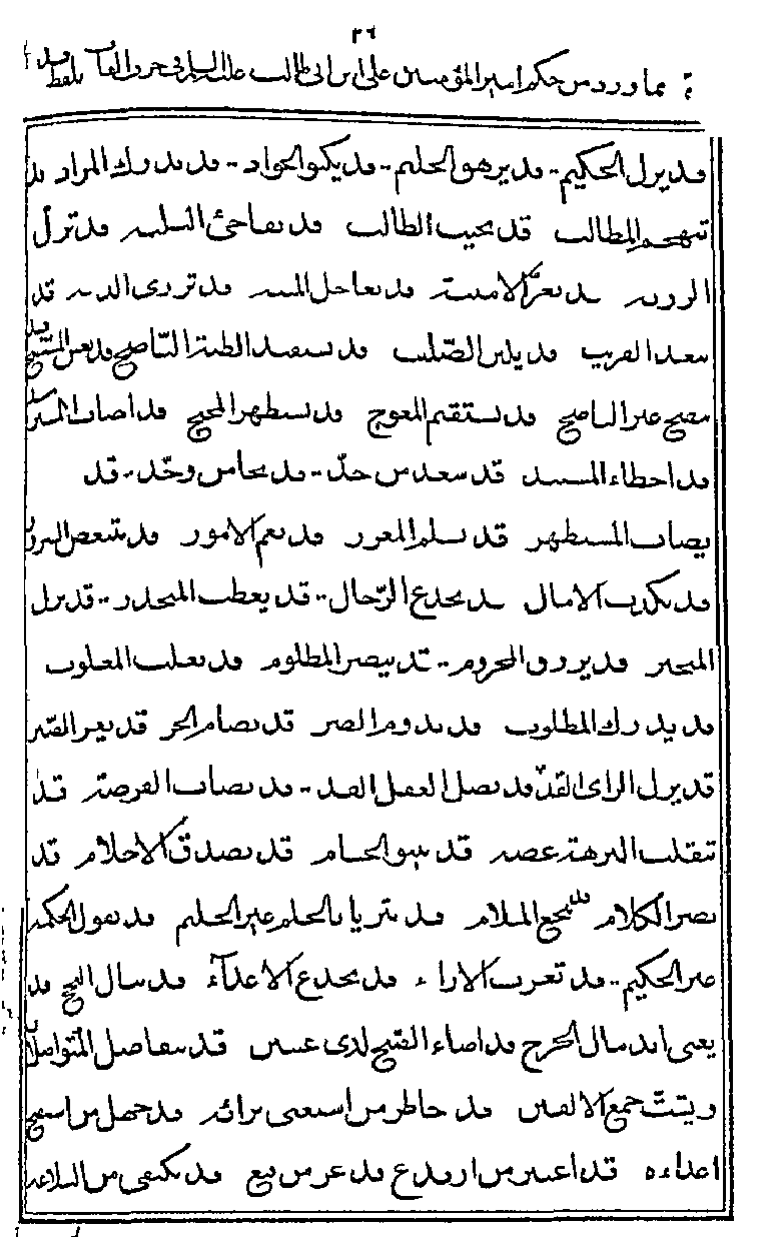 ٣٦
مما ورد من حكم امير المؤمنين على ابن ابى طالب عليه السلم فى حرف القاف بلفظ قد
قد يزل الحكيم قد يزهق الحليم قد يكبو الجواد قد يدرك المراد قد
تنهجم المطالب قد يخيب الطالب قد تفاجئ البلية قد تزل
الروية قد تغر الامنية قد تعاجل المنية قد تزرى الدنية قد
يبعد القريب قد يلين الصليب قد يستفيد الظنة الناصح قد يغش المستنصح
ينصح غير الناصح قد يستقيم المعوج قد يستظهر المحتج قد اصاب المسترشد
قد اخطاء المستبد قد سعد من جد قد
يصاب المستظهر قد يسلم المغرر قد تعم الامور قد يتنغص السرور
قد تكذب الامال قد يخدع الرجال قد يعطب المتحذر قد يزل
المتجبر قد يرزق المحروم قد ينصر المظلوم قد يغلب المغلوب
قد يدرك المطلوب قد يدوم الضر قد يضام الحر قد يعز الصبر
قد يزل الراى الفذ قد يضل العقل الفذ قد تصاب الفرصة قد
تنقلب النزهة غصة قد ينبو الحسام قد تصدق الاحلام قد
يضر الكلام ينجع الملام قد يتزيا بالحلم غير الحليم قد يقول الحكمة
غير الحكيم قد تعزب الاراء قد تخدع الاعداء قد ينال النجح قد
يعيى اندمال الجرح قد اضاء الصبح لذى عينين قد يتفاصل المتواصلان
ويتشتت جمع الاليفين قد خاطر من استغنى برائه قد جهل من استنصح
اعداءه قد اعتبر من ارتدع قد عز من قنع قد يكتفى من البلاغة